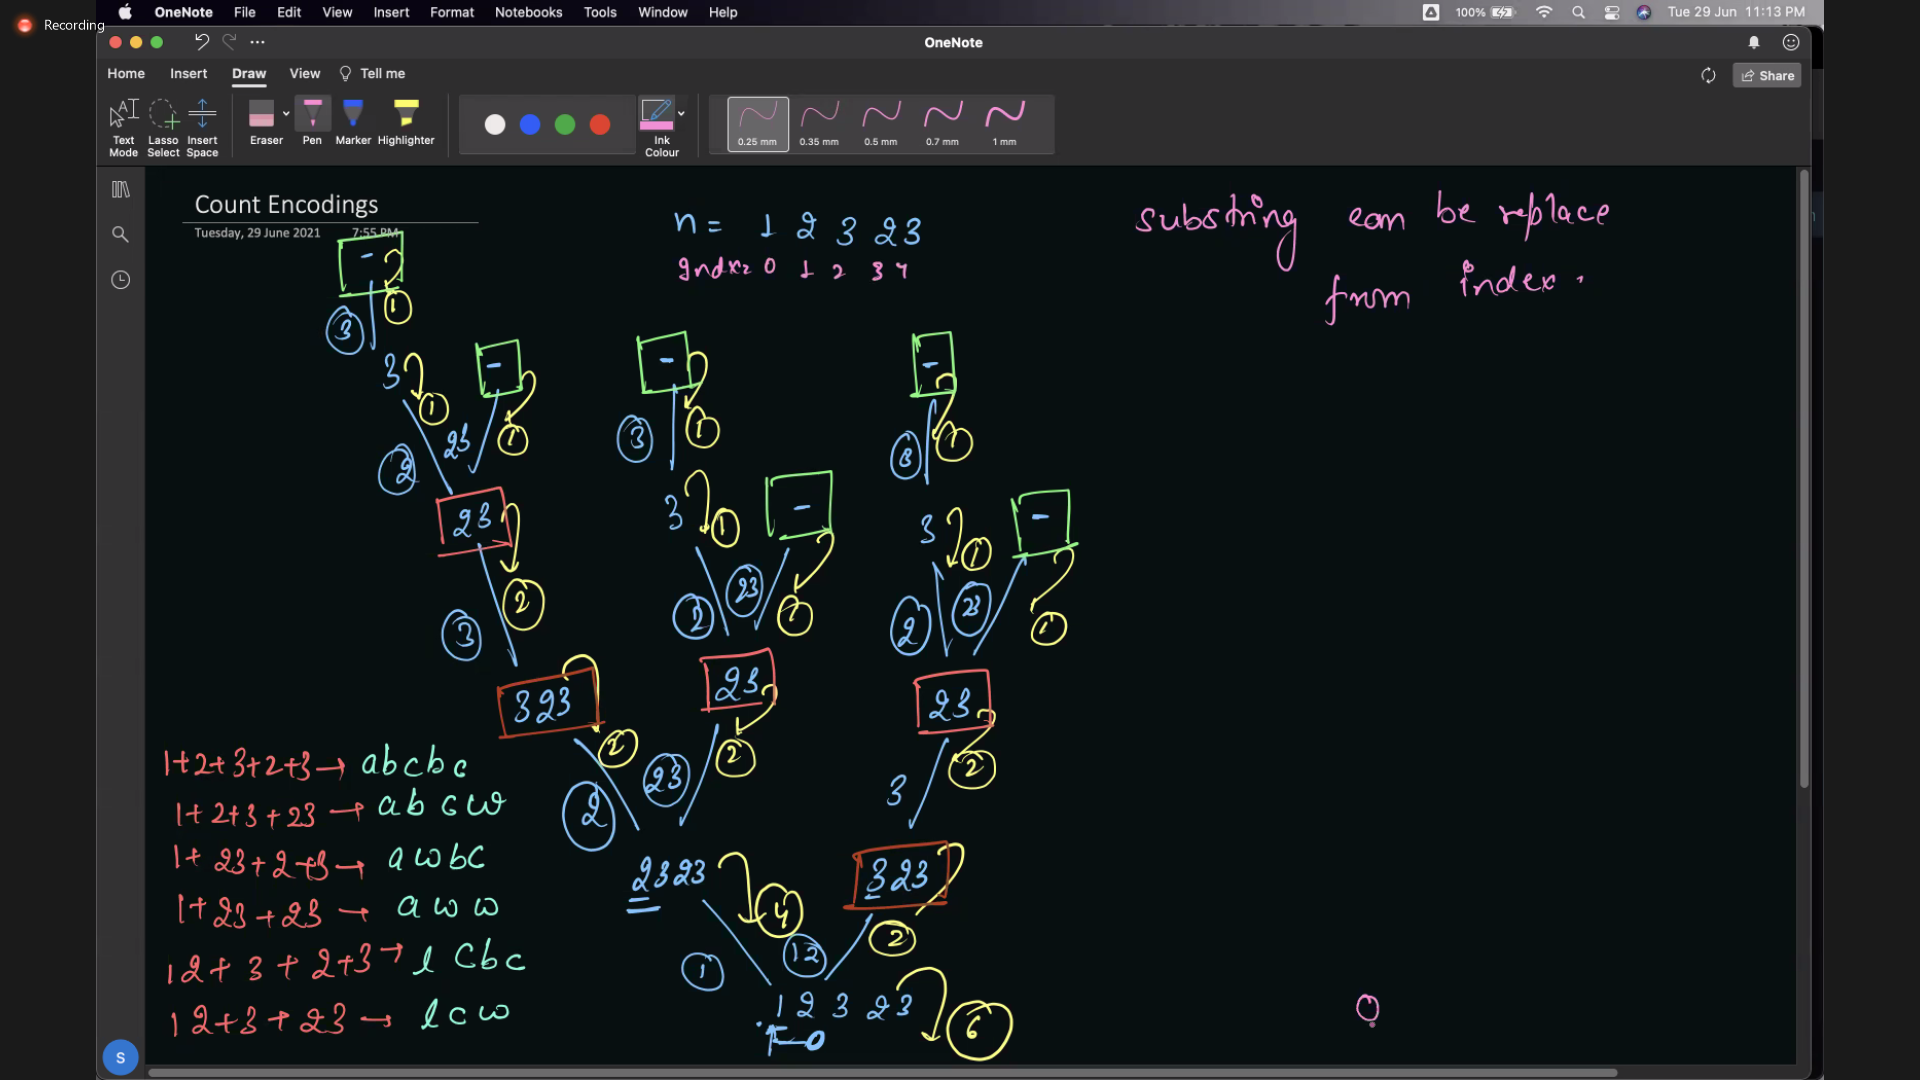 Recording
OneNote File Edit View Insert Format Notebooks Tools Window Help
100% Tue 29 Jun 11:13 PM
OneNote
Home Insert Draw View Tell me
Share
Text Mode
Lasso Select
Insert Space
Eraser
Pen
Marker
Highlighter
Ink Colour
0.25 mm 0.35 mm 0.5 mm 0.7 mm 1 mm
Count Encodings
Tuesday, 29 June 2021 7:55 PM
n = 1 2 3 2 3
Index = 0 1 2 3 4
substring can be replace
from index.
- 1
3
3 1 - 1 - 1 - 1
2 23 3 3
23 3 1 - 3 1 -
2 2 23 1 2 23 1
3
323 23 23
2 2 2
2 23 3
2323 323
4 2
1 12
1 2 3 2 3
6
0
1+2+3+2+3 → abcbc
1+2+3+23 → abcw
1+23+2+3 → awbc
1+23+23 → aww
12+3+2+3 → lcbc
12+3+23 → lcw
0
S